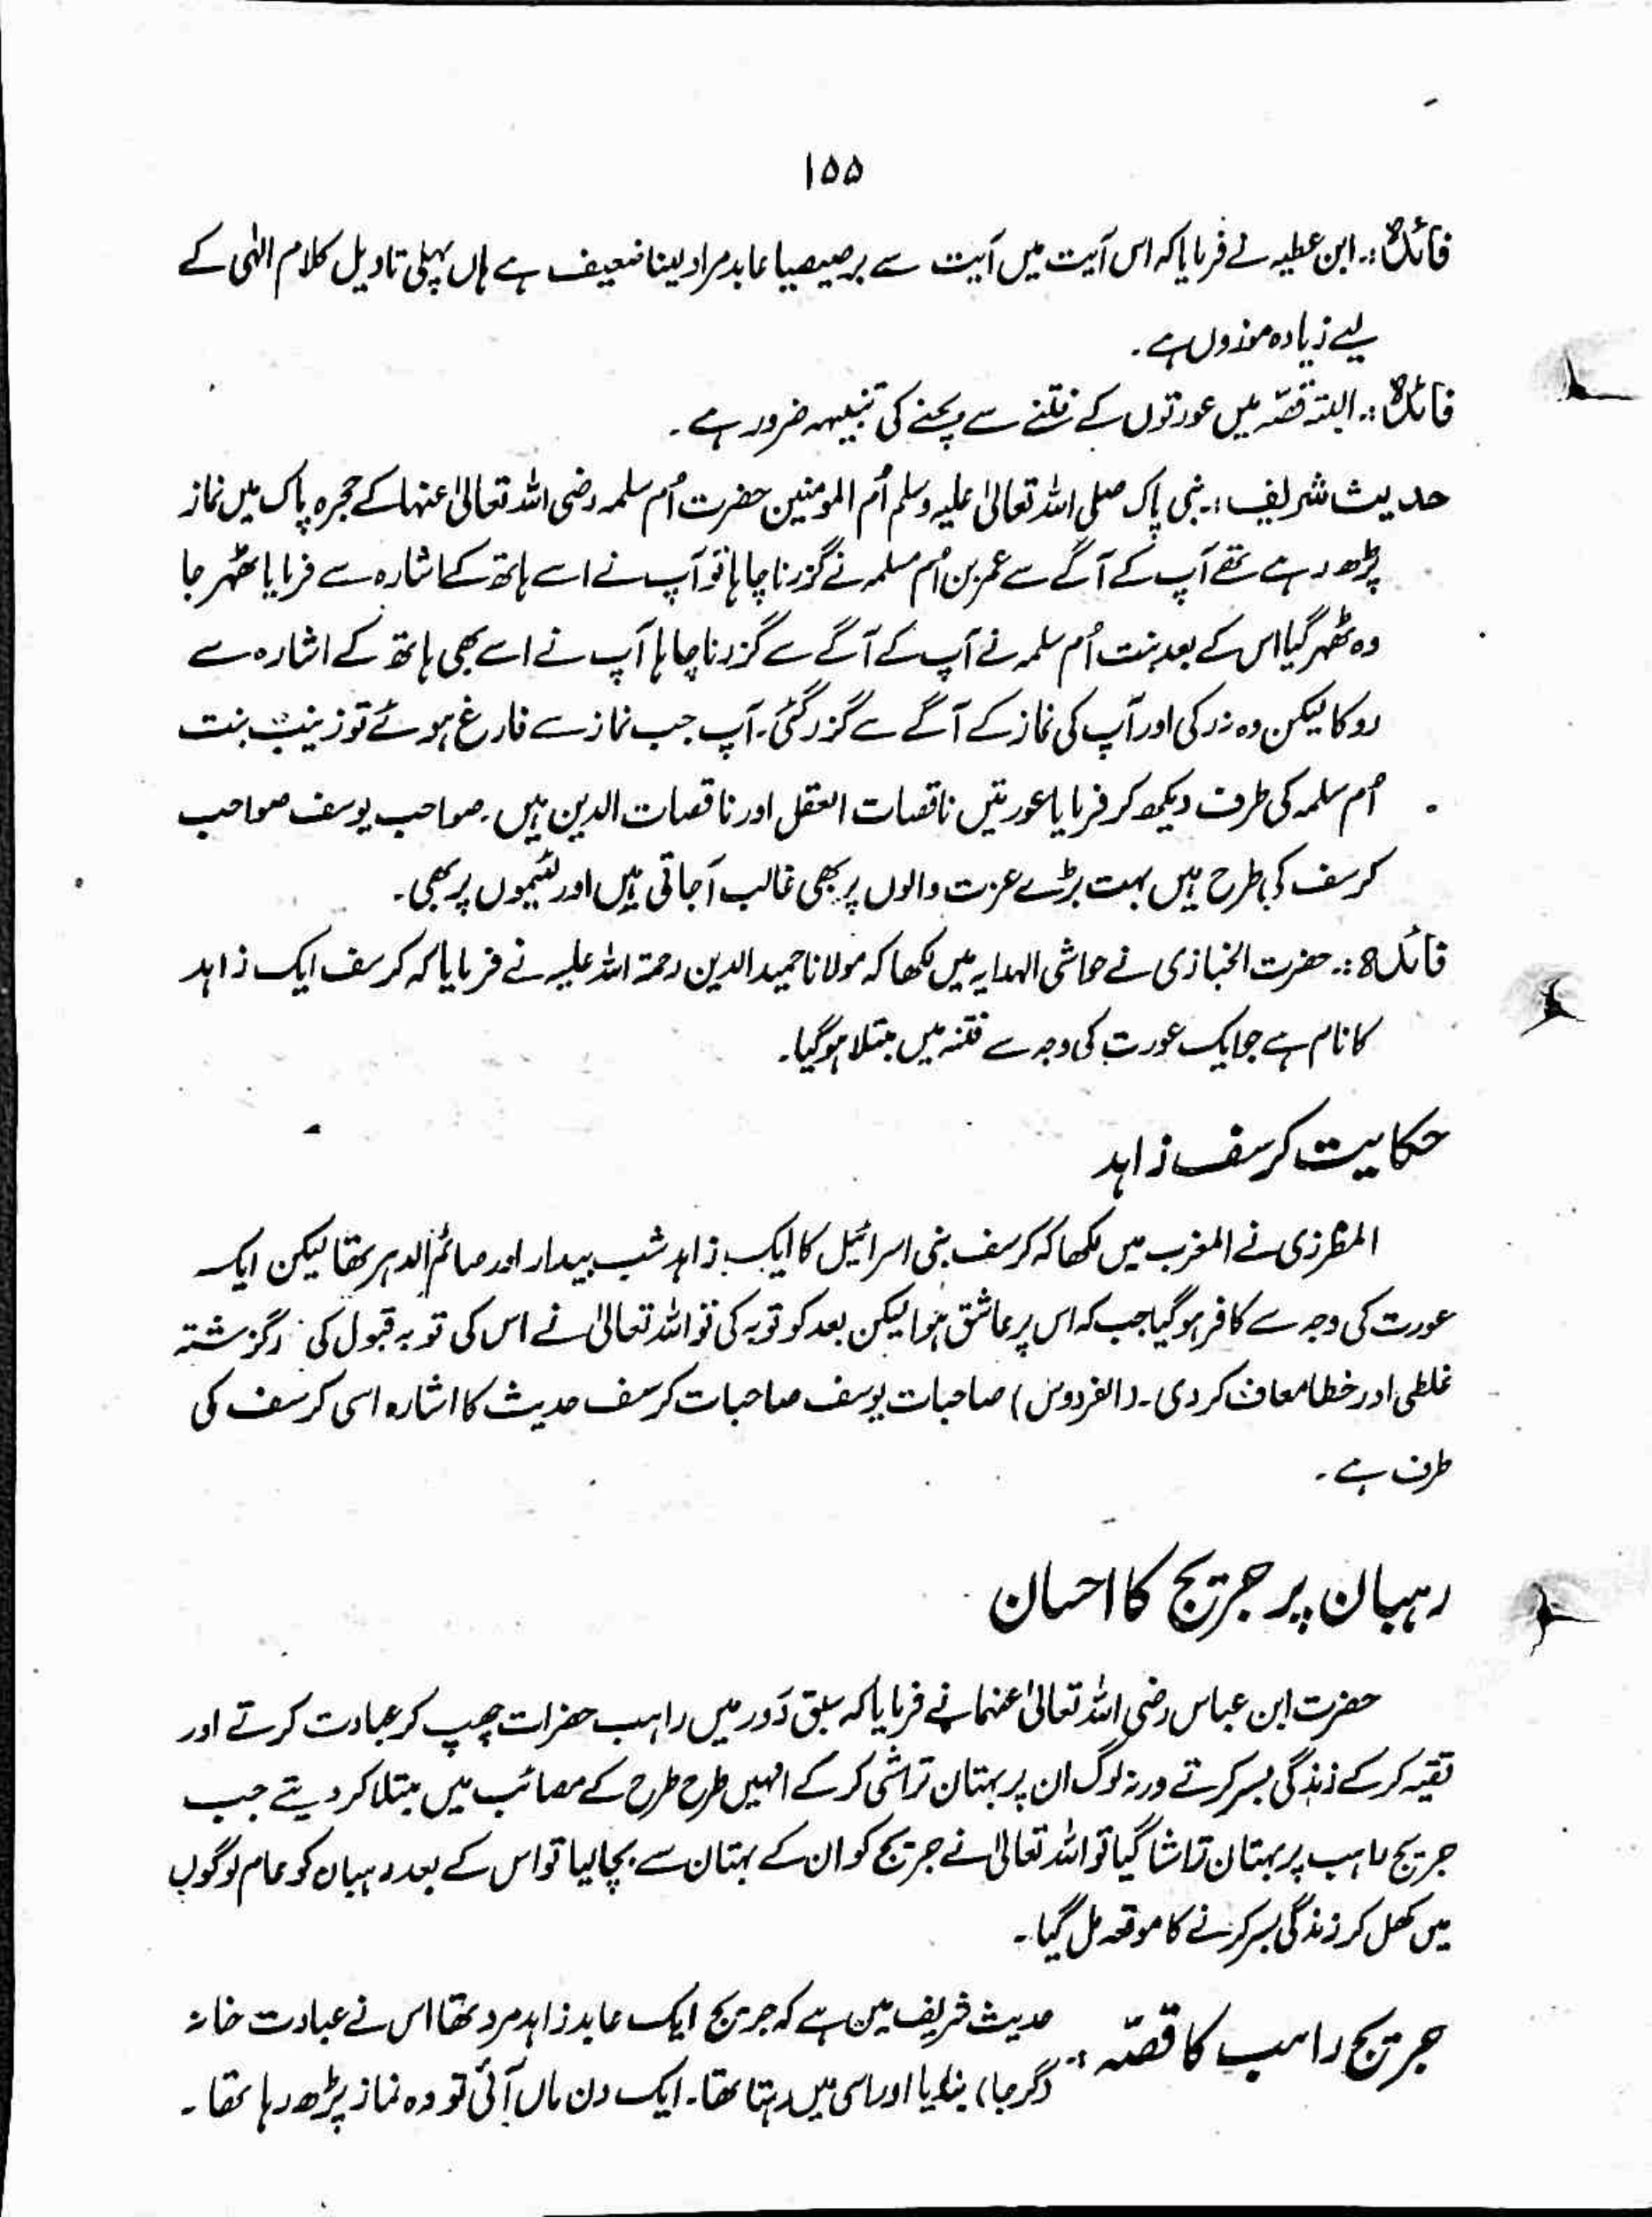 ۱۵۵
فائدہ:۔ ابن عطیہ نے فرمایا کہ اس آیت میں آیت سے برصیصیا عابد مراد لینا ضعیف ہے ہاں پہلی تاویل کلام الٰہی کے
لیے زیادہ موزوں ہے۔
فائدہ:۔ البتہ قصّہ میں عورتوں کے فتنے سے بچنے کی تنبیہہ ضرور ہے۔
حدیث شریف:۔ نبی پاک صلی اللہ تعالیٰ علیہ وسلم اُم المومنین حضرت اُم سلمہ رضی اللہ تعالیٰ عنہا کے حجرہ پاک میں نماز
پڑھ رہے تھے آپ کے آگے سے عمر بن اُم سلمہ نے گزرنا چاہا تو آپ نے اسے ہاتھ کے اشارہ سے فرمایا ٹھہر جا
وہ ٹھہر گیا اس کے بعد بنت اُم سلمہ نے آپ کے آگے سے گزرنا چاہا آپ نے اسے بھی ہاتھ کے اشارہ سے
روکا لیکن وہ نہ رکی اور آپ کی نماز کے آگے سے گزر گئی۔ آپ جب نماز سے فارغ ہوئے تو زینب بنت
اُم سلمہ کی طرف دیکھ کر فرمایا عورتیں ناقصات العقل اور ناقصات الدین ہیں۔ صواحب یوسف صواحب
کرسف کی طرح ہیں بہت بڑے عزت والوں پر بھی غالب آجاتی ہیں اور لئیموں پر بھی۔
فائدہ:۔ حضرت الخبازی نے حواشی الہدایہ میں لکھا کہ مولانا حمید الدین رحمۃ اللہ علیہ نے فرمایا کہ کرسف ایک زاہد
کا نام ہے جو ایک عورت کی وجہ سے فتنہ میں مبتلا ہوگیا۔
حکایت کرسف زاہد
المطرزی نے المغرب میں لکھا کہ کرسف بنی اسرائیل کا ایک زاہد شب بیدار اور صائم الدہر تھا لیکن ایک
عورت کی وجہ سے کافر ہوگیا جب کہ اس پر عاشق ہوا لیکن بعد کو توبہ کی تو اللہ تعالیٰ نے اس کی توبہ قبول کی گزشتہ
غلطی اور خطا معاف کر دی۔ (الفردوس) صاحبات یوسف صاحبات کرسف حدیث کا اشارہ اسی کرسف کی
طرف ہے۔
رہبان پر جریج کا احسان
حضرت ابن عباس رضی اللہ تعالیٰ عنہما نے فرمایا کہ سابق دَور میں راہب حضرات چھپ کر عبادت کرتے اور
تقیہ کر کے زندگی بسر کرتے ورنہ لوگ ان پر بہتان تراشی کر کے انہیں طرح طرح کے مصائب میں مبتلا کر دیتے جب
جریج راہب پر بہتان تراشا گیا تو اللہ تعالیٰ نے جریج کو ان کے بہتان سے بچا لیا تو اس کے بعد رہبان کو عام لوگوں
میں کھل کر زندگی بسر کرنے کا موقعہ مل گیا۔
جریج راہب کا قصّہ:۔ حدیث شریف میں ہے کہ جریج ایک عابد زاہد مرد تھا اس نے عبادت خانہ
(گرجا) بنا لیا اور اسی میں رہتا تھا۔ ایک دن ماں آئی تو وہ نماز پڑھ رہا تھا۔